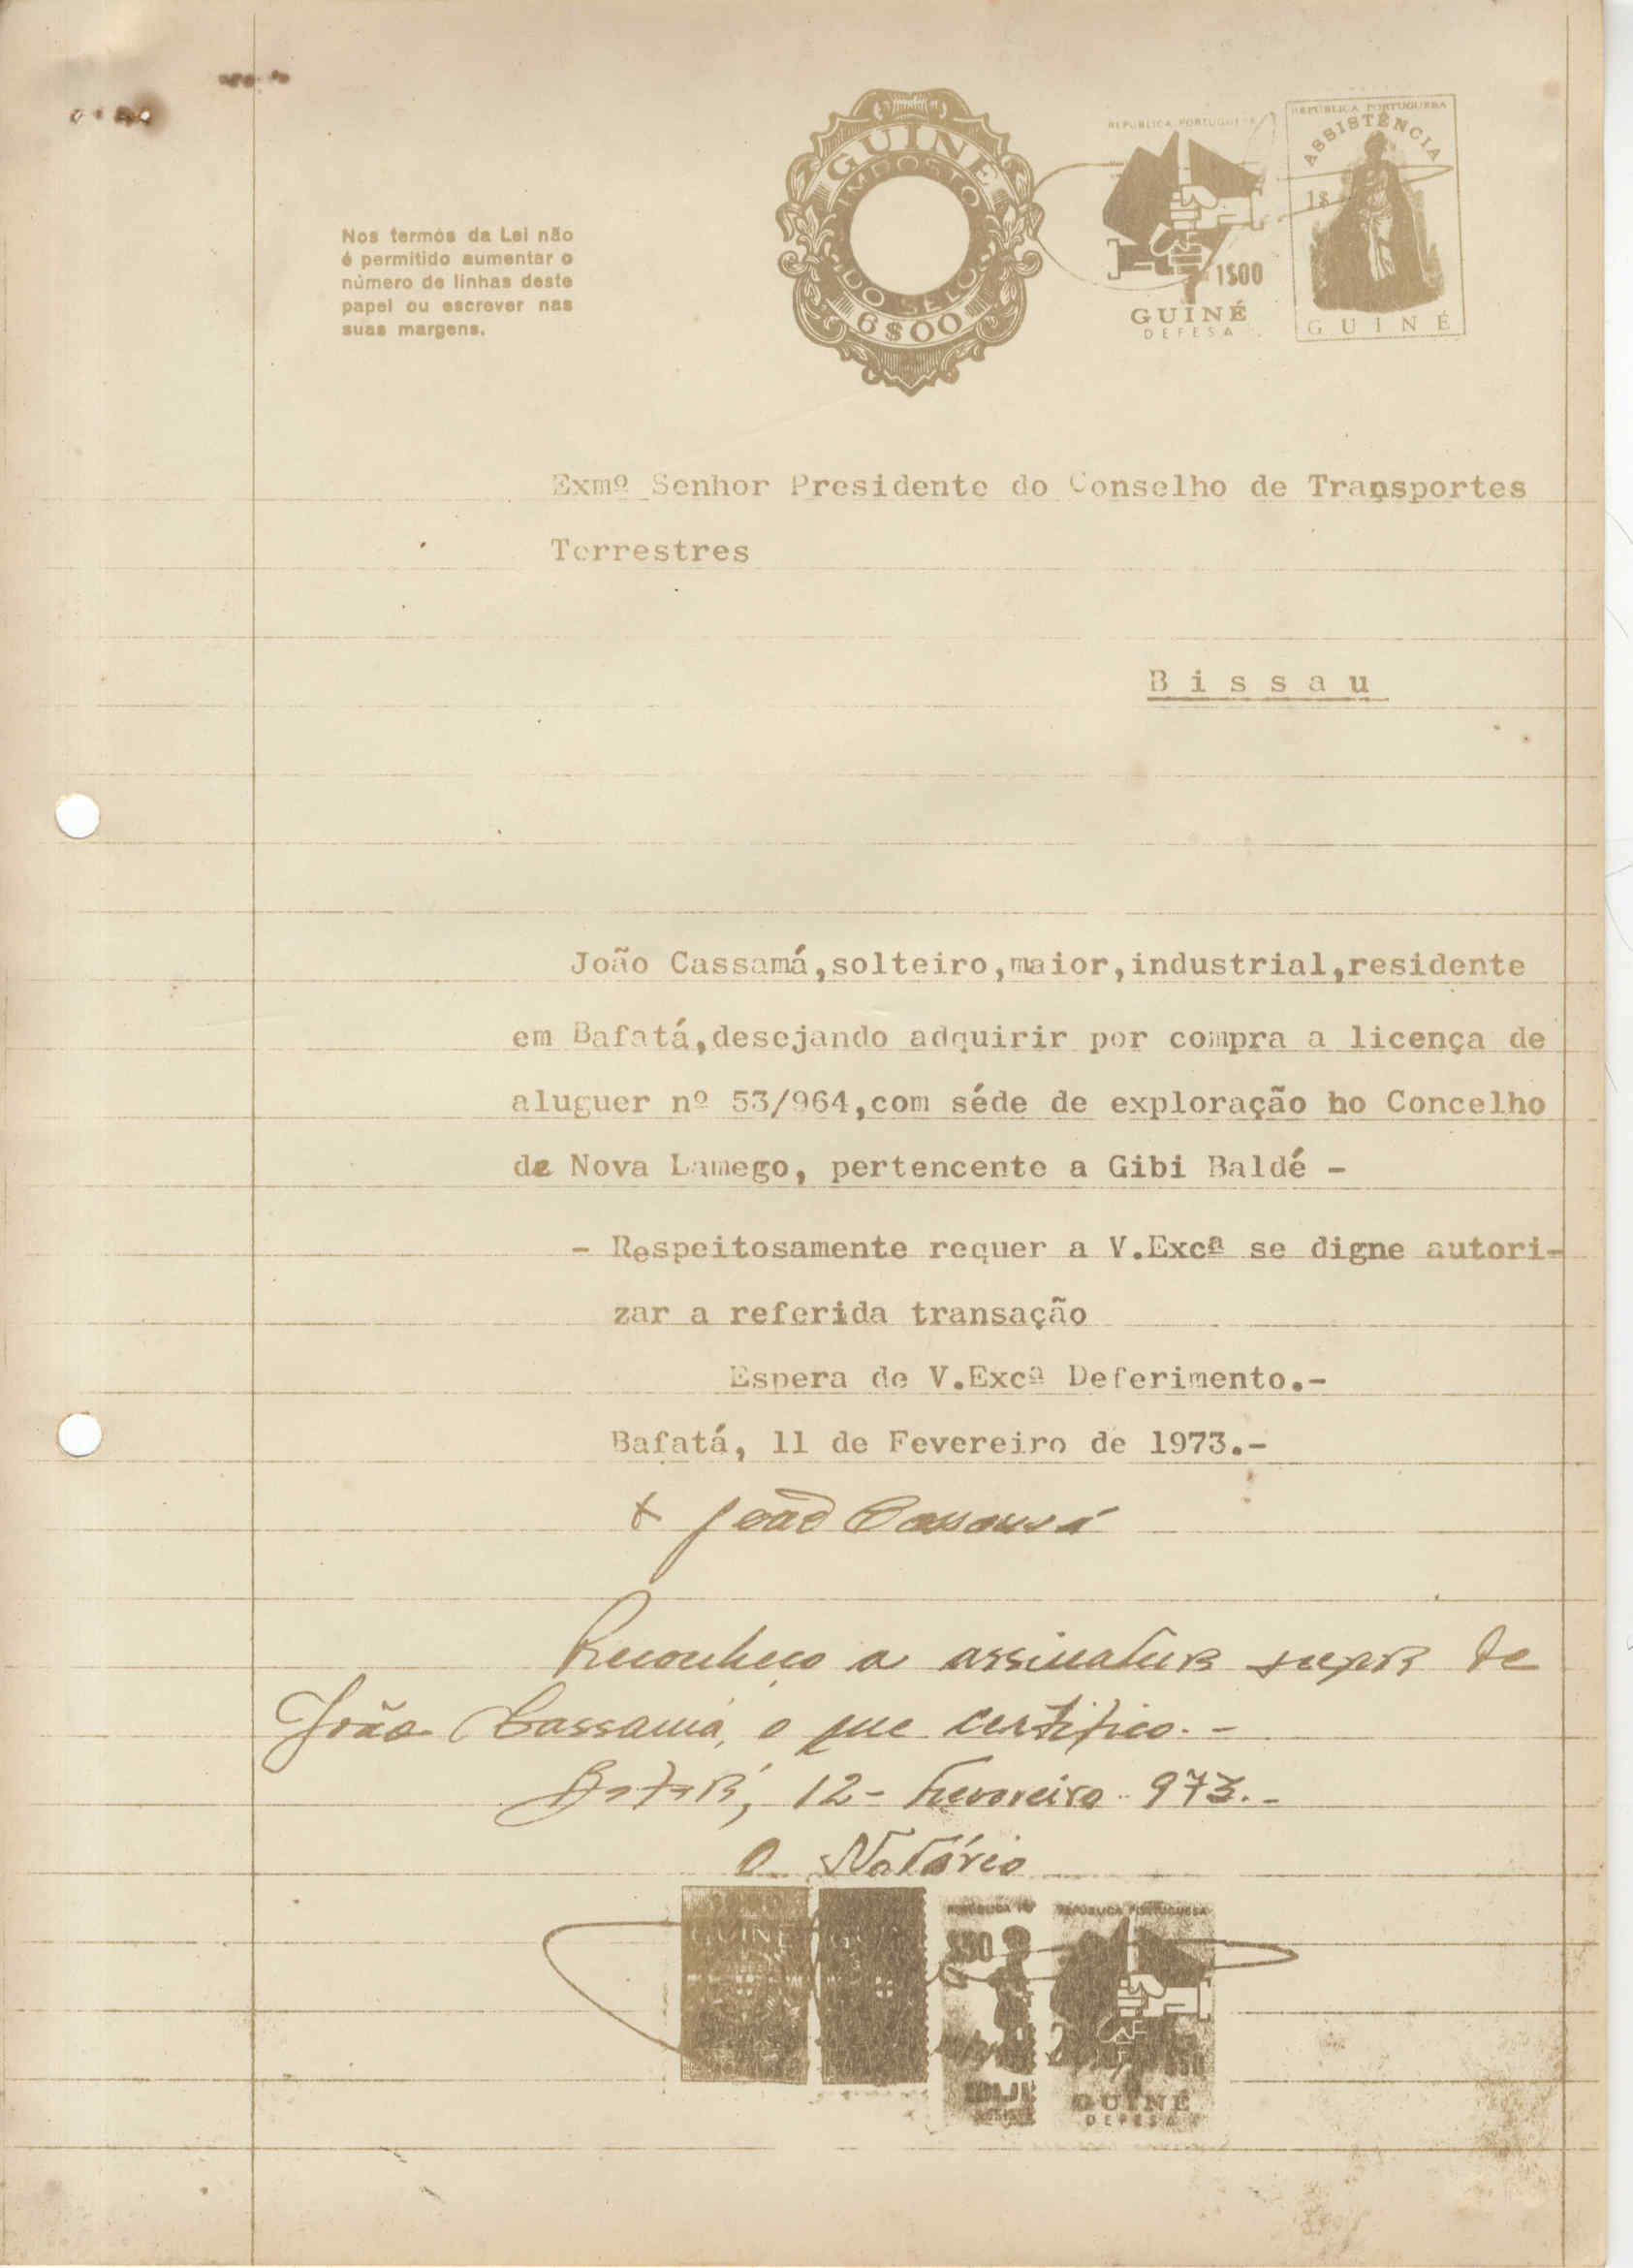 Nos termos da Lei não
é permitido aumentar o
número de linhas deste
papel ou escrever nas
suas margens.
GUINÉ
IMPOSTO
DO SELO
6$00
REPÚBLICA PORTUGUESA
1$00
GUINÉ
DEFESA
REPÚBLICA PORTUGUESA
ASSISTÊNCIA
1$
GUINÉ
Exmº Senhor Presidente do Conselho de Transportes
Terrestres
Bissau
João Cassamá,solteiro,maior,industrial,residente
em Bafatá,desejando adquirir por compra a licença de
aluguer nº 53/964,com séde de exploração ho Concelho
de Nova Lamego, pertencente a Gibi Baldé -
- Respeitosamente requer a V.Excª se digne autori-
zar a referida transação
Espera de V.Excª Deferimento.-
Bafatá, 11 de Fevereiro de 1973.-
x João Cassamá
Reconheço a assinatura supra de
João Cassamá, o que certifico.-
Bafatá, 12- Fevereiro 973.-
O Notário
GUINÉ
$50
REPÚBLICA PORTUGUESA
GUINÉ
DEFESA